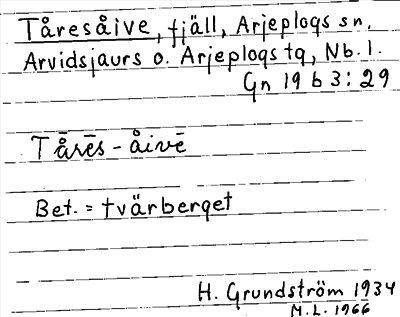 Tåresåive, fjäll, Arjeplogs sn.
Arvidsjaurs o. Arjeplogs tg, Nb. l.
Gn 19 b 3:29
Tårēs-åivē
Bet. = tvärberget
H. Grundström 1934
M.L. 1966